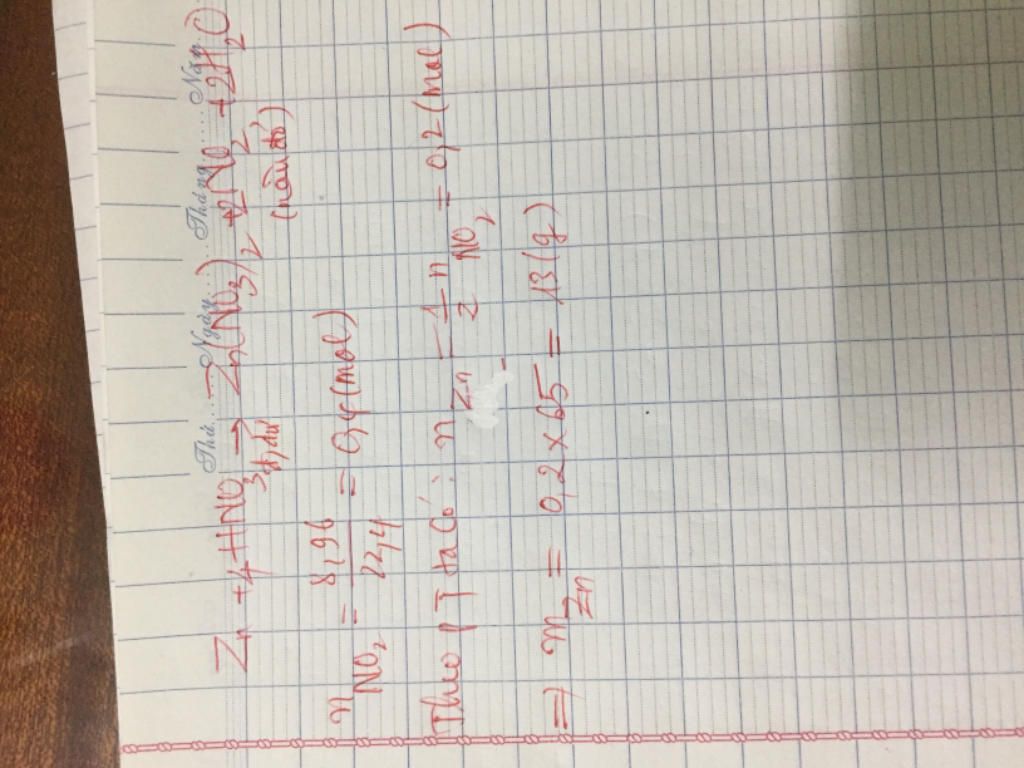 Thứ......Ngày......Tháng......Năm
Zn + 4HNO3 đ,dư → Zn(NO3)2 + 2NO2 + 2H2O
(nâu đỏ)
nNO2 = 8,96/22,4 = 0,4 (mol)
Theo PT ta có: nZn = 1/2 nNO2 = 0,2 (mol)
=> mZn = 0,2 x 65 = 13 (g)